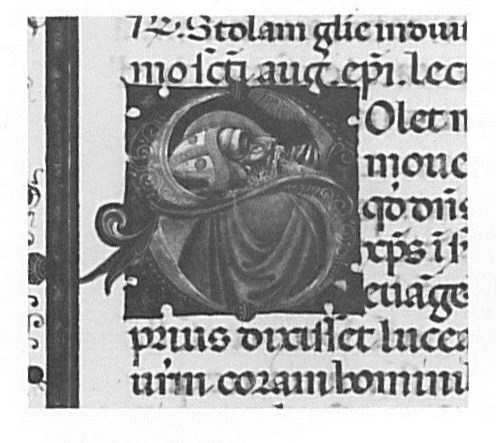 R̃. Stolam gl̃ie induit
mo sc̃ti aug. ep̃i. lec
Olet m
moue
qd̃. dñs
xp̃s i
euãge
prius dixisset lucea
ur̃m coram homini